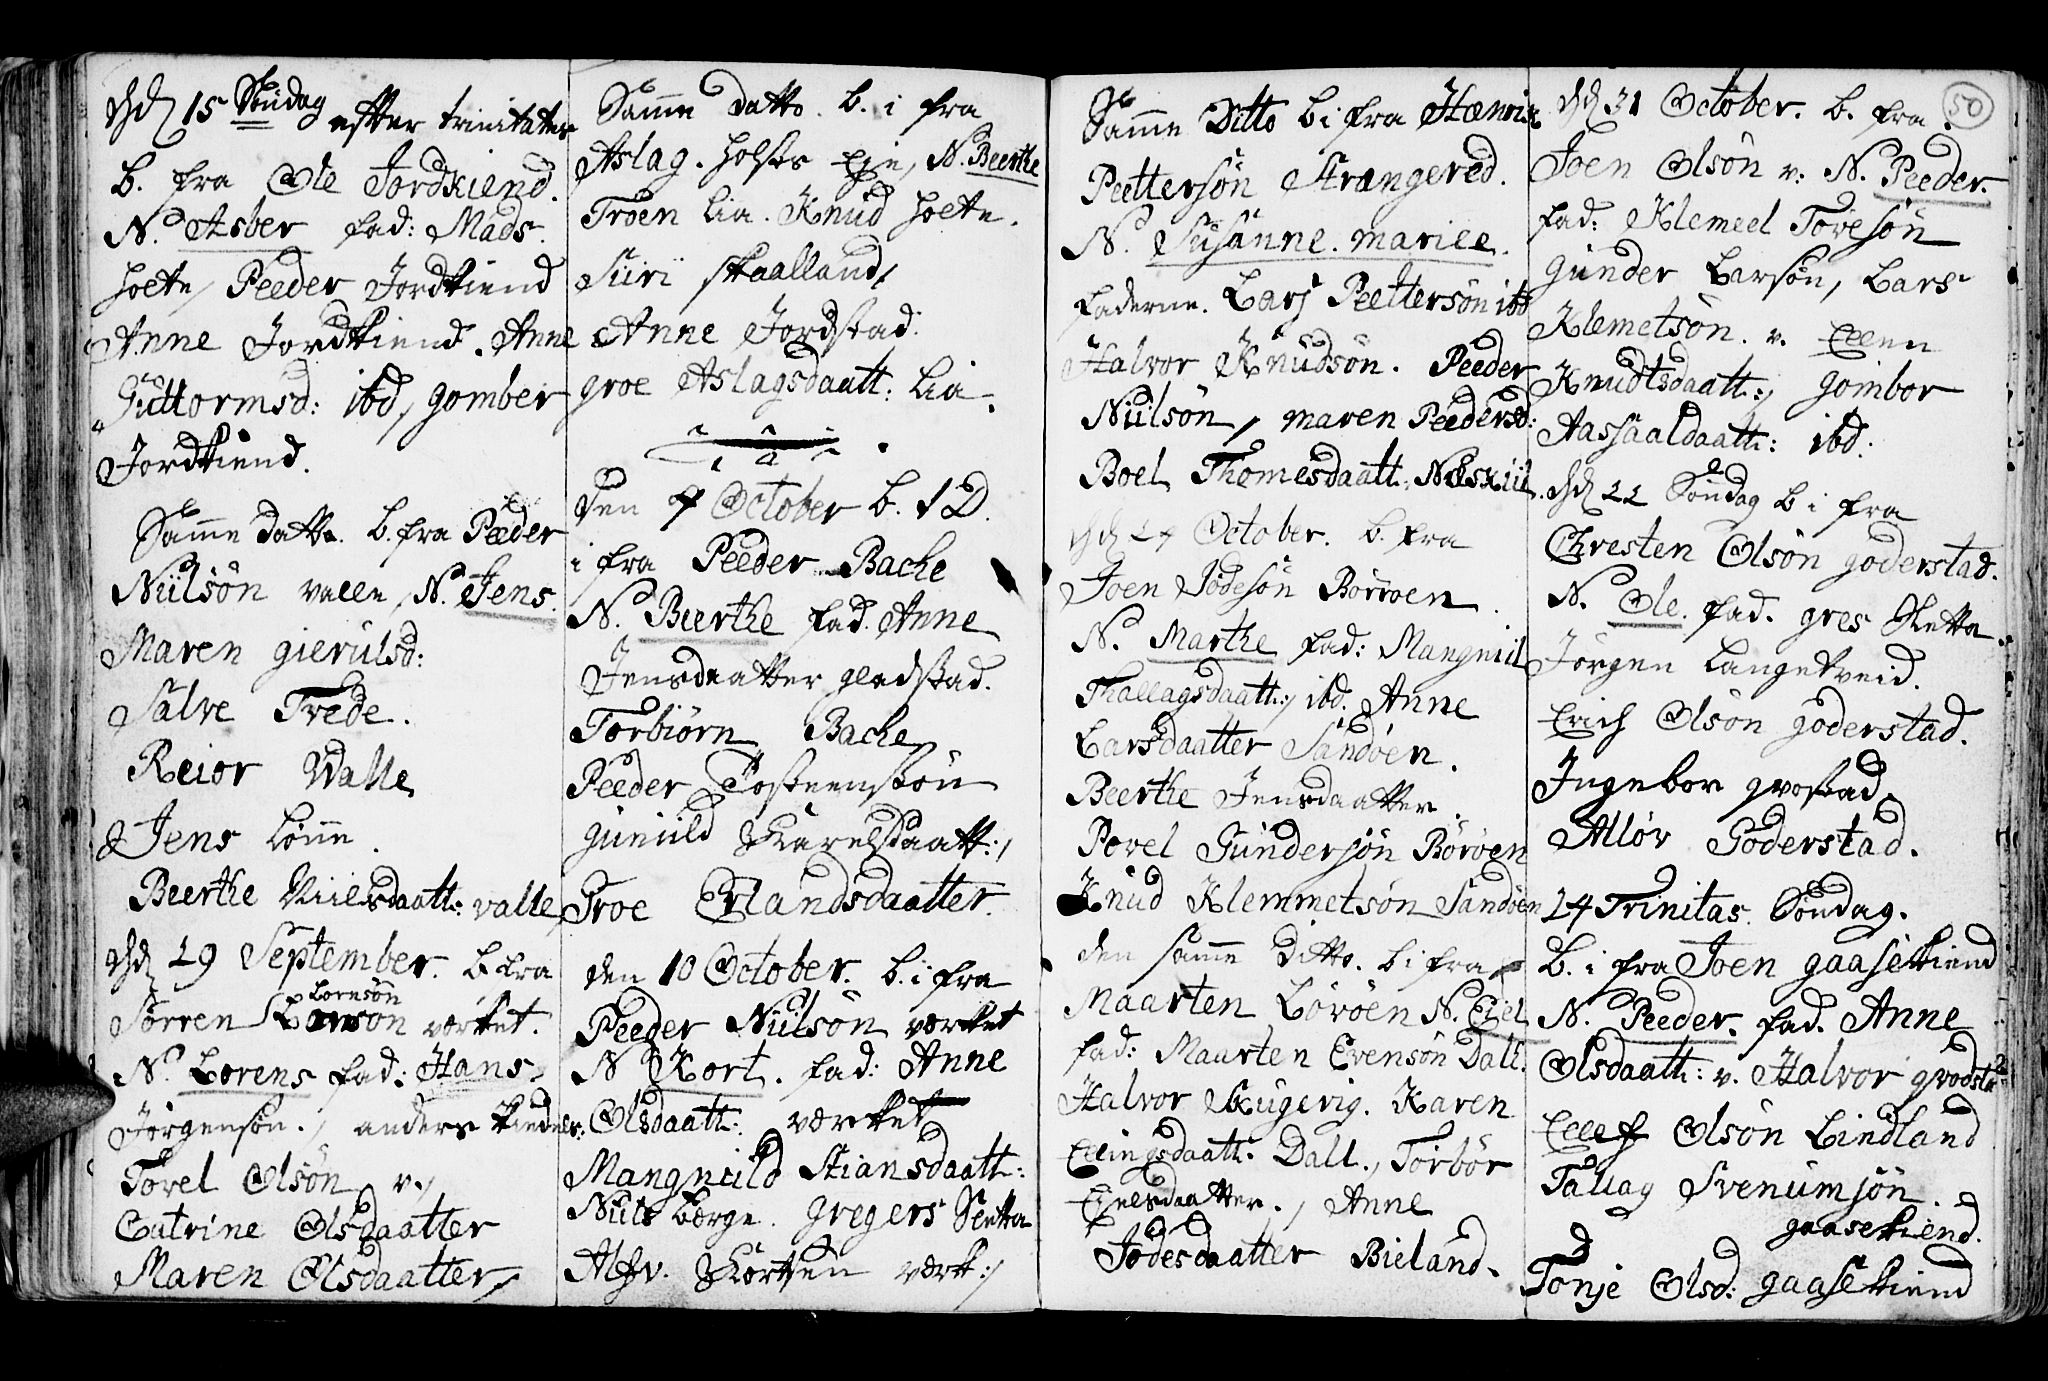 15 Söndag efter trinitates
b. fra Ole Jordkiend.
N. Asber fad: Mads.
holte, Peeder Jordkiend
Anne Jordkiend. Anne
Guttormsd: ibd, gomber
Jordkiend.
Samme datto. b. fra Peeder
Niilsön valle, N. Jens.
Maren gierulsd:
Salve Trede.
Reior Valle
Jens Lönne.
Beerthe Niilsdaatt: valle
29 September. b. fra
Sörren Lornsön værket.
N. Lorens fad: Hans
Jörgensön., anders
Torel Olsön v.,
Catrine Olsdaatter
Maren Olsdaatter,
Samme datto. b. i fra
Aslag. holtes Eje, N. Beerthe
Troen Lia. Knud holte.
Siiri skaalland,
Anne Jordstad.
groe Aslagsdaatt: Lia.
den 4 October b. 1 D.
i fra Peeder Bache
N. Bierthe fad. Anne
Jensdaatter gladstad.
Torbiörn Bache
Peeder Tosteensön
guniild Karelsdaatt:,
Groe Erlandsdaatter.
den 10 October. b. i fra
Peeder Niilsön værket
N. Kort. fad: Anne
Olsdaatt: værket
Mangniild Stiansdaatt:
Niils Berge. gregers
Kortsen værk:,
50
Samme Ditto b i fra Hænrik
Peettersön Strængered.
N. Susanne. mariee.
faderne. Lars Peettersön ibd
Halvor Knudsön. Peeder
Niilsön, maren Peedersd:
Boel Thomesdaatt. Neskiil.
October. b. fra
Joen Jödesön Börröen.
N. Marthe fad: Mangniil
Thallagsdaatt:, ibd. Anne
Larsdaatter Sandöen.
Beerthe Jensdaatter.
Povel Gundersön Böröen
Knud Klemmetsön Sandöen
den samme ditto. b i fra
Maarten Böröen N. Ejel
fad: Maarten Evensön Dall.
Halvor Skugerig. Karen
Ellingsdaatt: Dall., Torbör
Ejelsdaatter., Anne
Jödesdaatter Bieland.
31 October. b. fra.
Joen Olsön v: N. Peeder.
fad: Klemeel Toresön
gunder Larsön, Lars
Klemetsön. v. Eleen
Knudtsdaatt:, gombor
Aassaaldaatt: ibd.
22 Söndag b i fra
Chresten Olsön goderstad.
N. Ole. fad. gres
Jörgen Langetveid.
Erich Olsön goderstad.
Ingebor grostad.
Allör Goderstad.
24 Trinitas Söndag.
b. i fra Joen gaasekiend
N. Peeder. fad. Anne
Olsdaatt: v. Halvor
Ellef Olsön Lindland
Tallag Svenumsön.
gaasekiend.
Tonje Olsd: gaasekiend